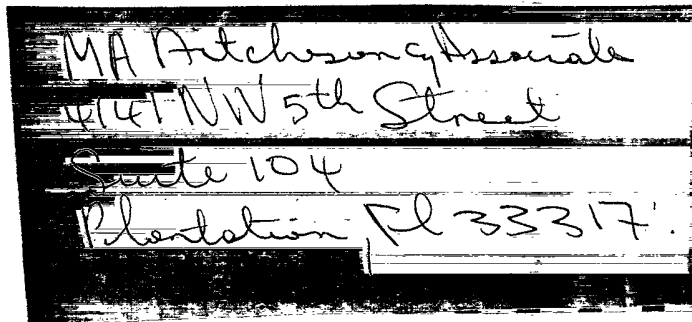 MA Aitcheson & Associate
4141 NW 5th Street
Suite 104
Plantation, Fl 33317.